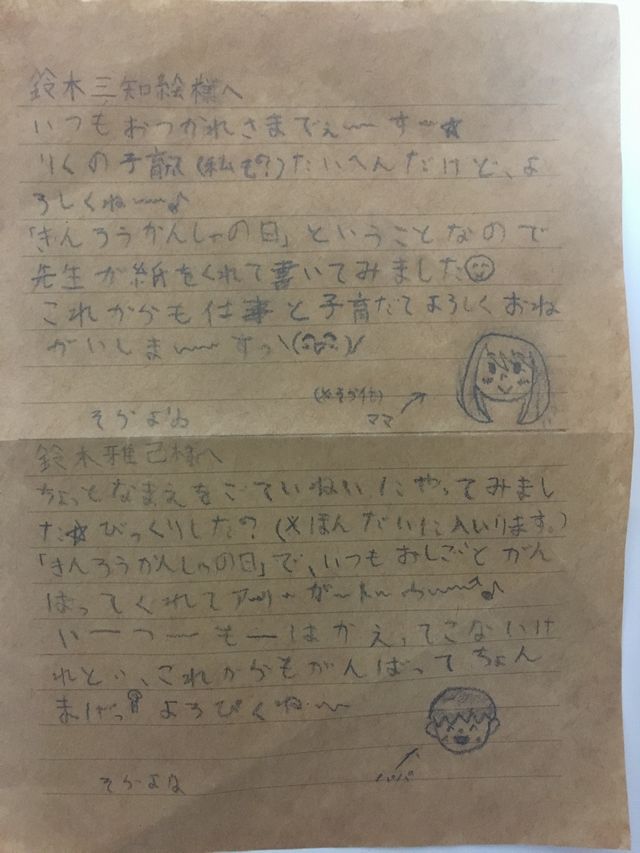 鈴木三知絵様へ
いつもおつかれさまでぇ〜〜す〜☆
りくの子育て(私も?)たいへんだけど、よ
ろしくね〜〜♪
「きんろうかんしゃの日」ということなので
先生が紙をくれて書いてみました☺
これからも仕事と子育だてよろしくおね
がいしま〜〜すっ\(^▽^)/
ママ
そらより
鈴木雅己様へ
ちょっとなまえをごていねいにやってみまし
た☆びっくりしたな?(※ほんだいに入いります。)
「きんろうかんしゃの日」で、いつもおしごとがん
ばってくれてア〜リ〜が〜
い―つ―も―はかえってこないけ
れどい、これからもがんばってちょん
まげっ よろぴくね〜〜
パパ
そらより